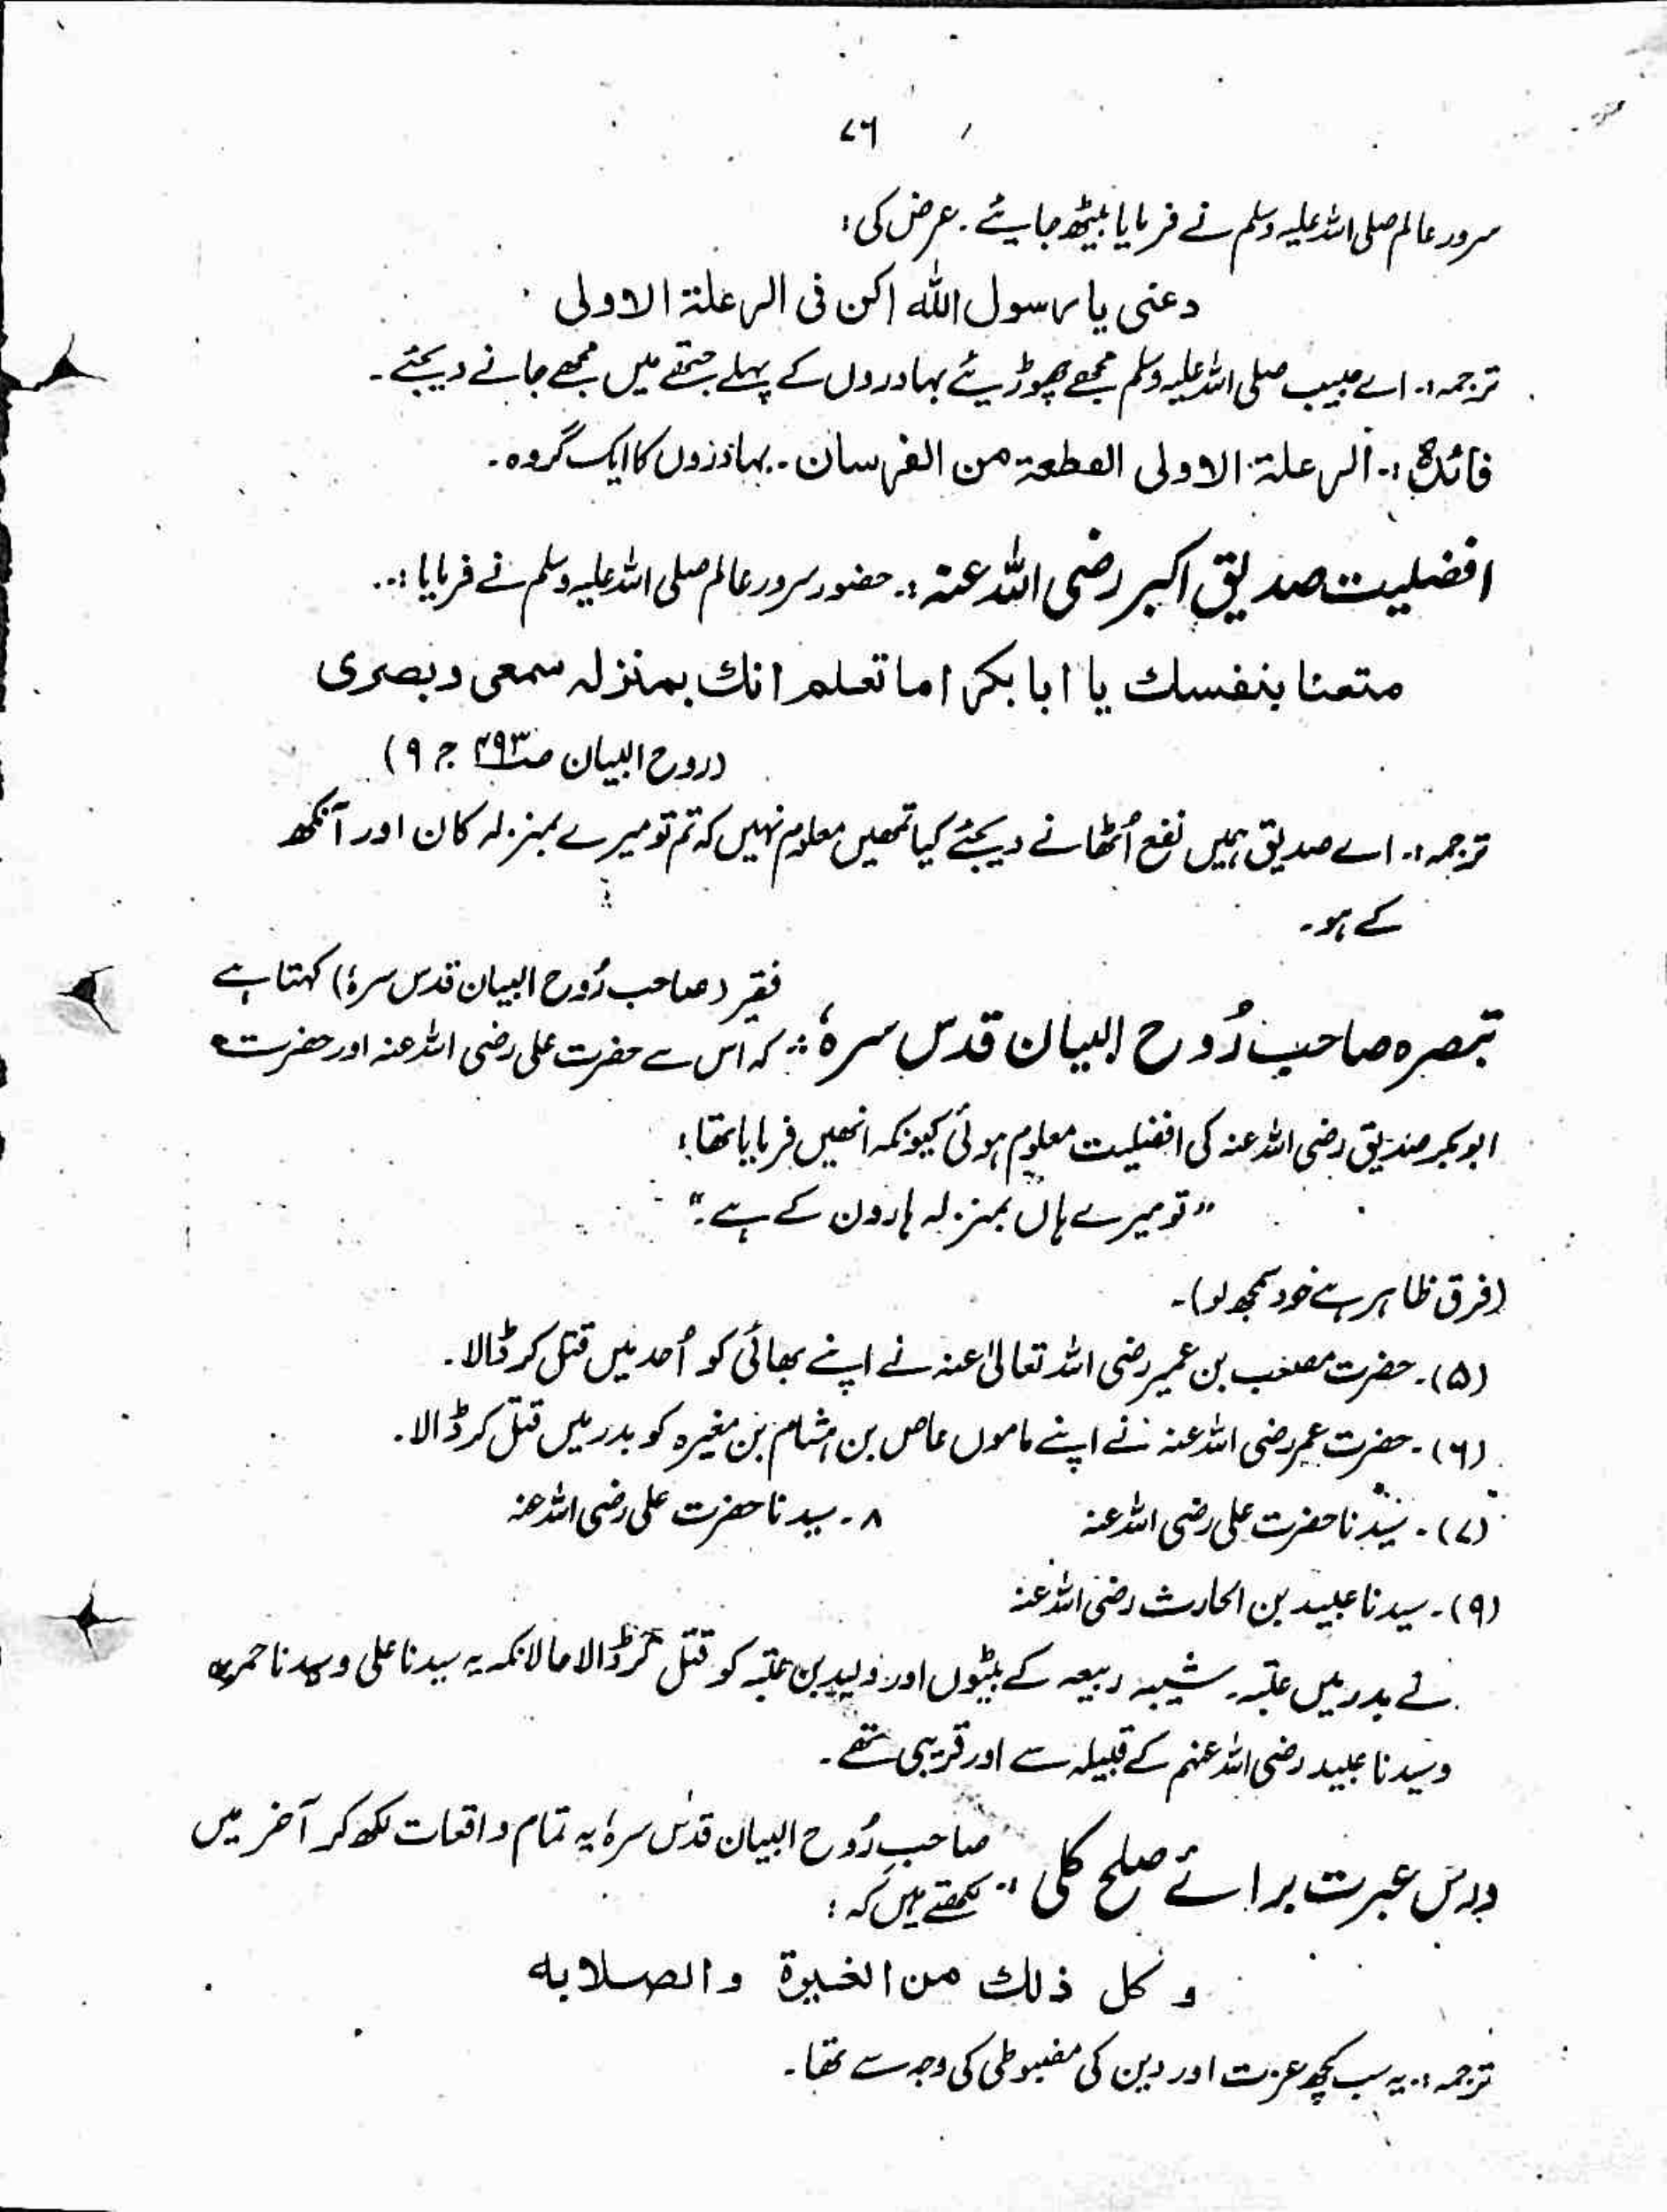 ۷۶
سرور عالم صلی اللہ علیہ وسلم نے فرمایا بیٹھ جایئے ۔ عرض کی :
دعنی یا رسول اللہ اکن فی الرعلة الاولی
ترجمہ :۔ اے حبیب صلی اللہ علیہ وسلم مجھے چھوڑیئے بہادروں کے پہلے جتھے میں مجھے جانے دیجئے ۔
فائدہ :۔ الرعلة الاولی القطعة من الفرسان ۔ بہادروں کا ایک گروہ ۔
افضلیت صدیق اکبر رضی اللہ عنہ :۔ حضور سرور عالم صلی اللہ علیہ وسلم نے فرمایا :۔
متعنا بنفسك یا ابا بکر اما تعلم انك بمنزلہ سمعی و بصری
(روح البیان ص۴۹۳ ج ۹)
ترجمہ :۔ اے صدیق ہمیں نفع اُٹھانے دیجئے کیا تمھیں معلوم نہیں کہ تم تو میرے بمنزلہ کان اور آنکھ
کے ہو ۔
تبصرہ صاحب رُوح البیان قدس سرہٗ :۔ فقیر (صاحب رُوح البیان قدس سرہٗ) کہتا ہے
کہ اس سے حضرت علی رضی اللہ عنہ اور حضرت
ابوبکر صدیق رضی اللہ عنہ کی افضلیت معلوم ہوئی کیونکہ انھیں فرمایا تھا :
"تو میرے ہاں بمنزلہ ہارون کے ہے ۔"
(فرق ظاہر ہے خود سمجھ لو) ۔
(۵) ۔ حضرت مصعب بن عمیر رضی اللہ تعالیٰ عنہ نے اپنے بھائی کو اُحد میں قتل کر ڈالا ۔
(۶) ۔ حضرت عمر رضی اللہ عنہ نے اپنے ماموں عاص بن ہشام بن مغیرہ کو بدر میں قتل کر ڈالا ۔
(۷) ۔ سیّدنا حضرت علی رضی اللہ عنہ ۸ ۔ سیدنا حضرت علی رضی اللہ عنہ
(۹) ۔ سیدنا عبید بن الحارث رضی اللہ عنہ
نے بدر میں عتبہ ۔ شیبہ ربیعہ کے بیٹوں اور ولید بن عتبہ کو قتل کر ڈالا حالانکہ یہ سیدنا علی و سیدنا حمزہ
و سیدنا عبید رضی اللہ عنہم کے قبیلہ سے اور قریبی تھے ۔
درس عبرت برائے صلح کلی :۔ صاحب رُوح البیان قدس سرہٗ یہ تمام واقعات لکھ کر آخر میں
لکھتے ہیں کہ :
و کل ذلك من الغیرة والصلابہ
ترجمہ :۔ یہ سب کچھ عزت اور دین کی مضبوطی کی وجہ سے تھا ۔